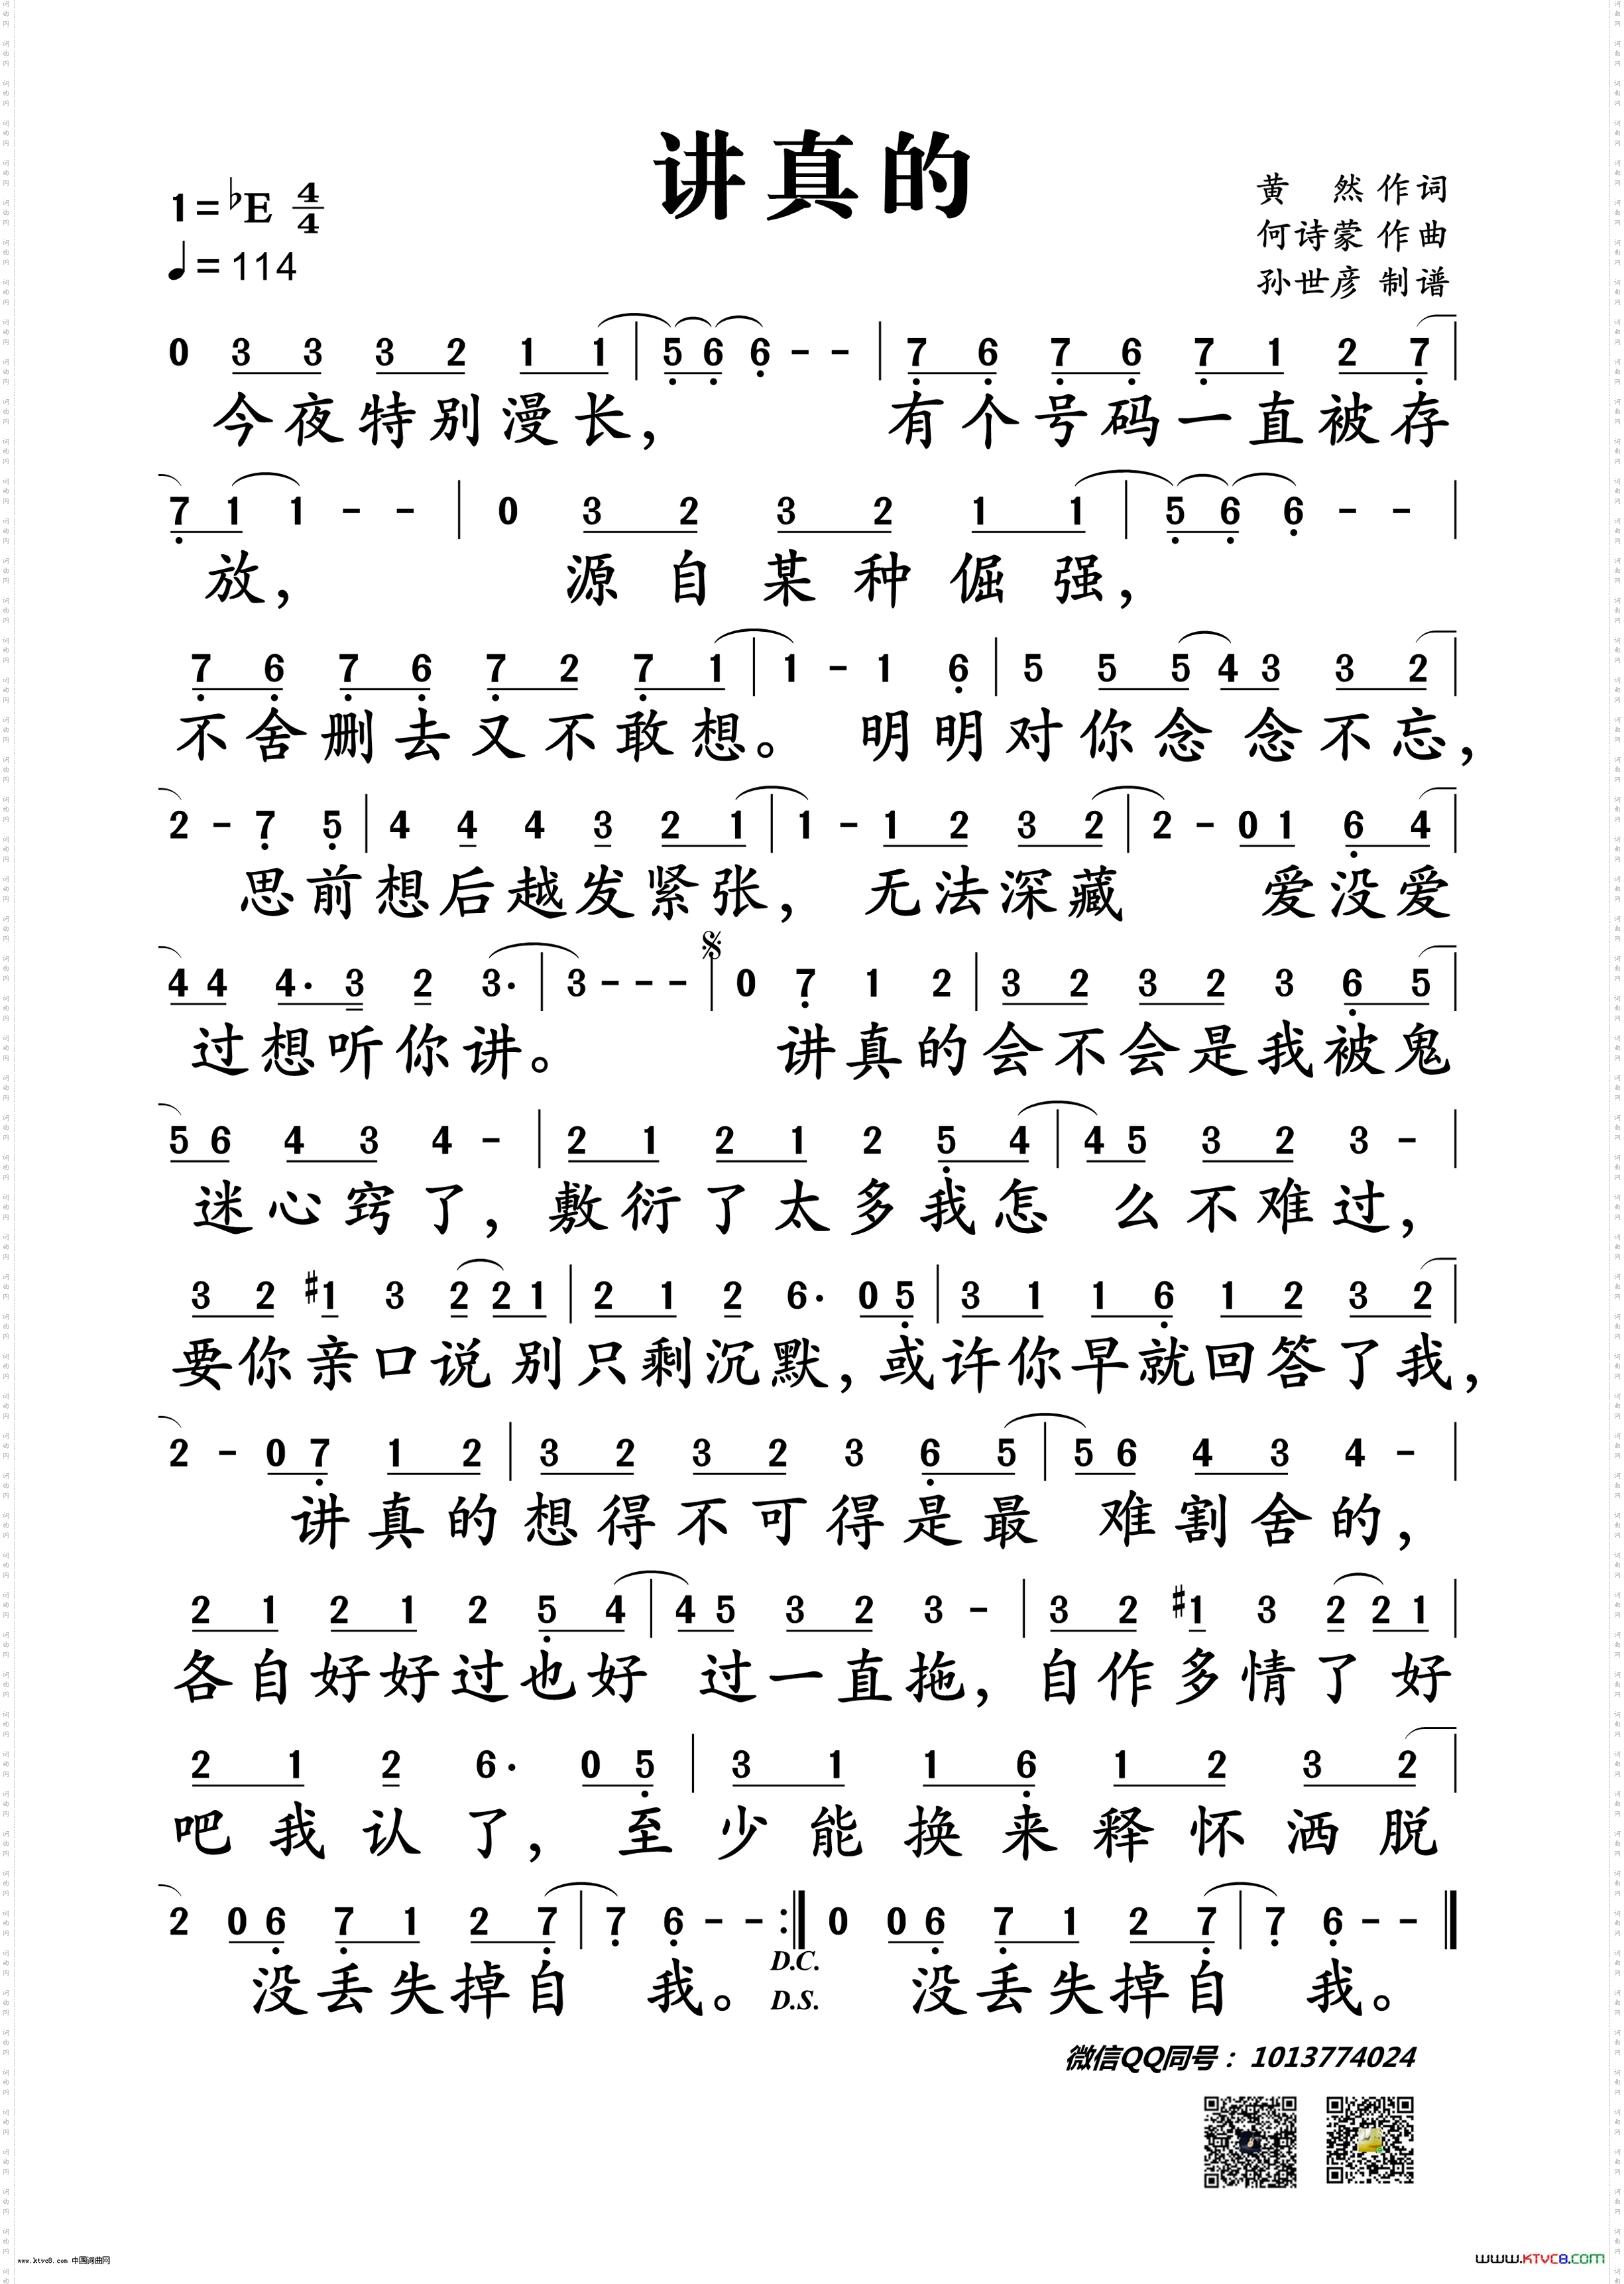 讲真的
1=♭E 4/4
♩=114
黄 然 作词
何诗蒙 作曲
孙世彦 制谱
0 3 3 3 2 1 1 | 5 6 6 - - | 7 6 7 6 7 1 2 7 |
今夜特别漫长， 有个号码一直被存
7 1 1 - - | 0 3 2 3 2 1 1 | 5 6 6 - - |
放， 源自某种倔强，
7 6 7 6 7 2 7 1 | 1 - 1 6 | 5 5 5 4 3 3 2 |
不舍删去又不敢想。 明明对你念 念不忘，
2 - 7 5 | 4 4 4 3 2 1 | 1 - 1 2 3 2 | 2 - 0 1 6 4 |
思前想后越发紧张， 无法深藏 爱没爱
4 4 4· 3 2 3· | 3 - - - | 0 7 1 2 | 3 2 3 2 3 6 5 |
过想听你讲。 讲真的会不会是我被鬼
5 6 4 3 4 - | 2 1 2 1 2 5 4 | 4 5 3 2 3 - |
迷心窍了，敷衍了太多我怎 么不难过，
3 2 #1 3 2 2 1 | 2 1 2 6· 0 5 | 3 1 1 6 1 2 3 2 |
要你亲口说 别只剩沉默，或许你早就回答了我，
2 - 0 7 1 2 | 3 2 3 2 3 6 5 | 5 6 4 3 4 - |
讲真的想得不可得是最 难割舍的，
2 1 2 1 2 5 4 | 4 5 3 2 3 - | 3 2 #1 3 2 2 1 |
各自好好过也好 过一直拖，自作多情了 好
2 1 2 6· 0 5 | 3 1 1 6 1 2 3 2 |
吧我认了，至少能换来释怀洒脱
2 0 6 7 1 2 7 | 7 6 - - :| 0 0 6 7 1 2 7 | 7 6 - - |
没丢失掉自 我。 D.C. D.S. 没丢失掉自 我。
微信QQ同号：1013774024
www.ktvc8.com 中国词曲网
www.KTVC8.com